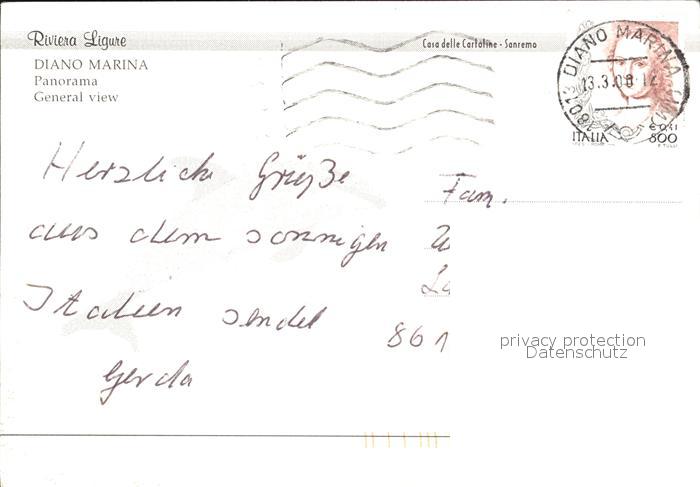 Riviera Ligure
Casa delle Cartoline - Sanremo
DIANO MARINA
Panorama
General view
DIANO MARINA (IM)
13.3.00 12
18013
ITALIA
€ 0,41
800
Herzliche Grüße
aus dem sonnigen
Italien sendet
Gerda
Fam.
861
privacy protection
Datenschutz